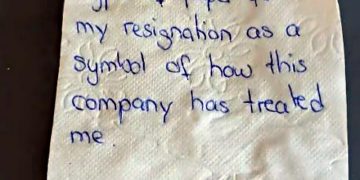 my resignation as a
symbol of how this
company has treated
me.